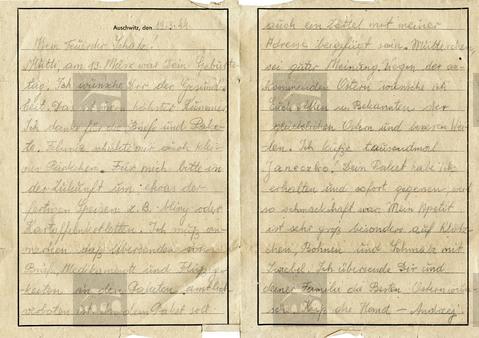 Auschwitz, den 19.3.44
Mein teuerster Schatz!
Mütti, am 13. März war Dein Geburts-
tag. Ich wünsche Dir der Gesund-
heit. Das ist
Ich danke für die Briefe und Pake-
te.
Päckchen. Für mich bitte in
der Zukunft um etwas der
fertigen Speisen z.B. oder
Kartoffenkotletten. Ich muß an-
merken daß Übersenden
Brief, Medikamente und Flüssig-
keiten in den Paketen amtlich
verboten ist. In dem Paket soll
auch ein Zettel mit meiner
Adresse beigefügt sein. Mütterchen
sei guter Meinung. Wegen der an-
kommenden Ostern wünsche ich
Euch Allen
glücklichen Ostern und besseren Zei-
ten. Ich küße tausendmal
Janeczko. Dein Paket habe ich
erhalten und sofort gegessen, weil
so schmackhaft war. Mein Apetit
ist sehr groß besonders auf
Bohnen und Schmalz mit
Zwiebel. Ich übersende Dir und
deiner Familie die Besten Osternwün-
sche. Küße die Hand – Andrzej